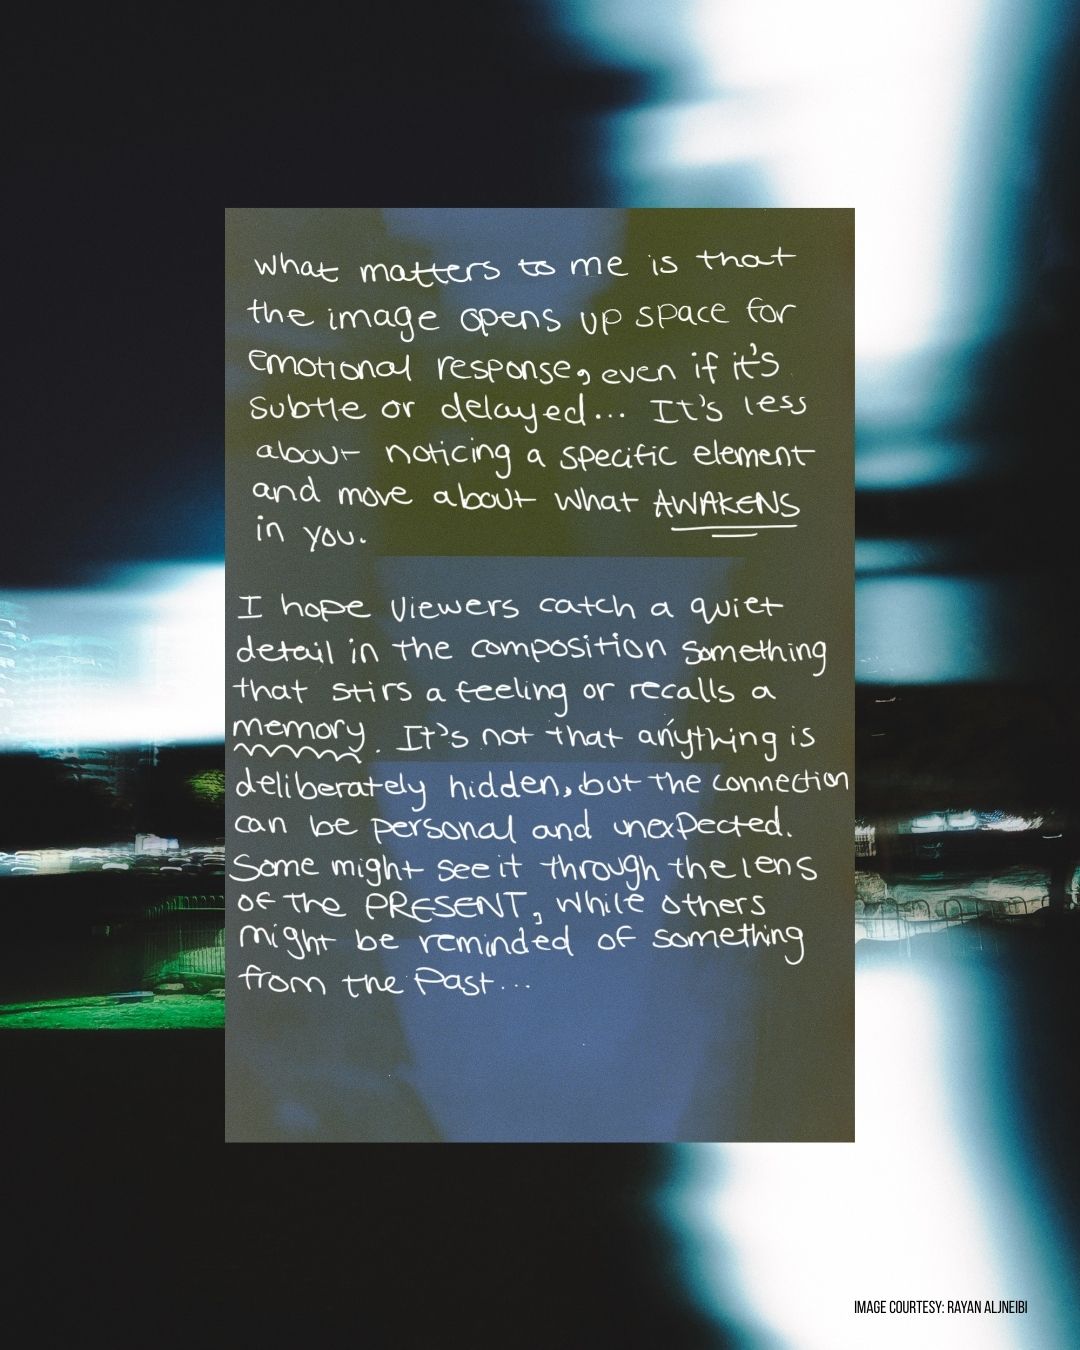 what matters to me is that
the image opens up space for
emotional response, even if it's
subtle or delayed... It's less
about noticing a specific element
and more about what AWAKENS
in you.
I hope viewers catch a quiet
detail in the composition something
that stirs a feeling or recalls a
memory. It's not that anything is
deliberately hidden, but the connection
can be personal and unexpected.
Some might see it through the lens
of the PRESENT, while others
might be reminded of something
from the past...
IMAGE COURTESY: RAYAN ALJNEIBI